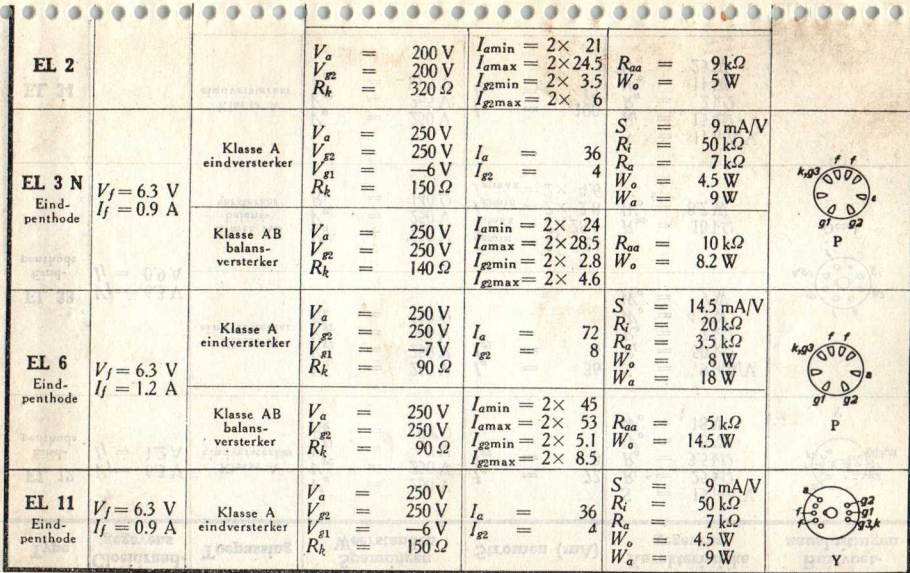 EL 2
V_a = 200 V
V_g2 = 200 V
R_k = 320 Ω
I_amin = 2× 21
I_amax = 2×24.5
I_g2min = 2× 3.5
I_g2max = 2× 6
R_aa = 9 kΩ
W_o = 5 W
EL 3 N
Eind-
penthode
V_f = 6.3 V
I_f = 0.9 A
Klasse A
eindversterker
V_a = 250 V
V_g2 = 250 V
V_g1 = —6 V
R_k = 150 Ω
I_a = 36
I_g2 = 4
S = 9 mA/V
R_i = 50 kΩ
R_a = 7 kΩ
W_o = 4.5 W
W_a = 9 W
Klasse AB
balans-
versterker
V_a = 250 V
V_g2 = 250 V
R_k = 140 Ω
I_amin = 2× 24
I_amax = 2×28.5
I_g2min = 2× 2.8
I_g2max = 2× 4.6
R_aa = 10 kΩ
W_o = 8.2 W
f f
k,g3
a
g1 g2
P
EL 6
Eind-
penthode
V_f = 6.3 V
I_f = 1.2 A
Klasse A
eindversterker
V_a = 250 V
V_g2 = 250 V
V_g1 = —7 V
R_k = 90 Ω
I_a = 72
I_g2 = 8
S = 14.5 mA/V
R_i = 20 kΩ
R_a = 3.5 kΩ
W_o = 8 W
W_a = 18 W
Klasse AB
balans-
versterker
V_a = 250 V
V_g2 = 250 V
R_k = 90 Ω
I_amin = 2× 45
I_amax = 2× 53
I_g2min = 2× 5.1
I_g2max = 2× 8.5
R_aa = 5 kΩ
W_o = 14.5 W
f f
k,g3
a
g1 g2
P
EL 11
Eind-
penthode
V_f = 6.3 V
I_f = 0.9 A
Klasse A
eindversterker
V_a = 250 V
V_g2 = 250 V
V_g1 = —6 V
R_k = 150 Ω
I_a = 36
I_g2 = 4
S = 9 mA/V
R_i = 50 kΩ
R_a = 7 kΩ
W_o = 4.5 W
W_a = 9 W
a
g2
f g1
f g3,k
Y